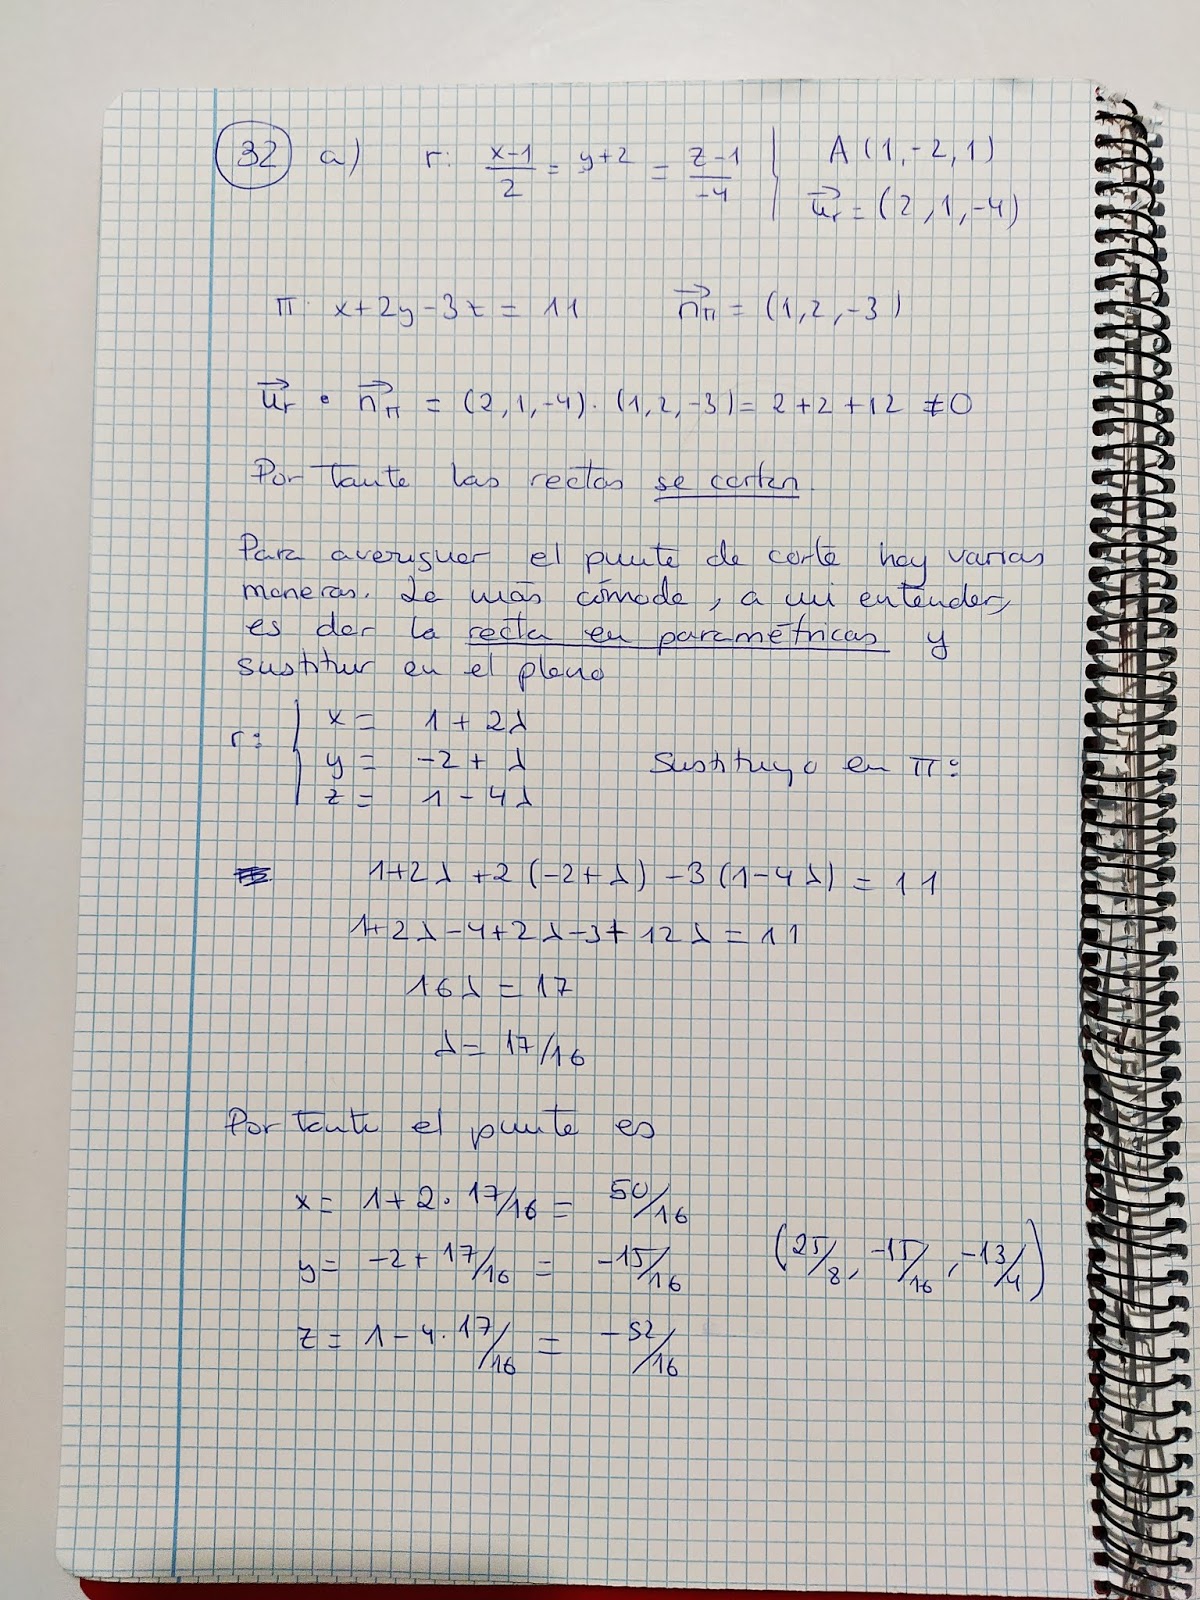 32 a) r: x-1/2 = y+2 = z-1/-4 A(1,-2,1)
u⃗r = (2,1,-4)
π: x+2y-3z = 11 n⃗π = (1,2,-3)
u⃗r • n⃗π = (2,1,-4)·(1,2,-3) = 2+2+12 ≠ 0
Por tanto las rectas se cortan.
Para averiguar el punto de corte hay varias
maneras. La más cómoda, a mi entender,
es dar la recta en paramétricas y
sustitur en el plano
r: { x = 1 + 2λ
y = -2 + λ Sustituyo en π:
z = 1 - 4λ
1+2λ +2(-2+λ) -3(1-4λ) = 11
1+2λ-4+2λ-3+12λ = 11
16λ = 17
λ = 17/16
Por tanto el punto es
x = 1+2·17/16 = 50/16
y = -2+17/16 = -15/16 (25/8, -15/16, -13/4)
z = 1-4·17/16 = -52/16